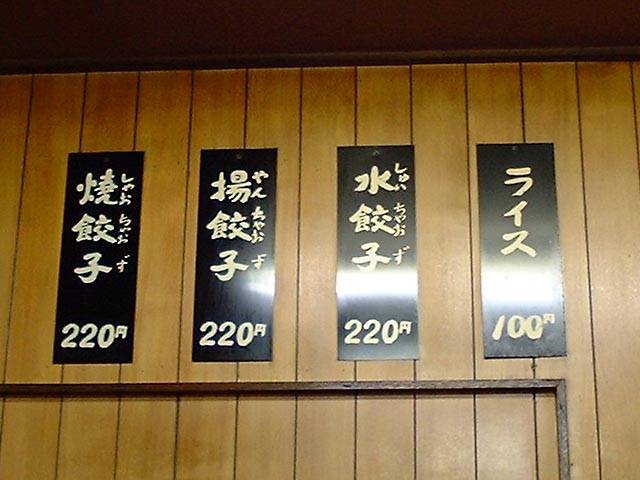 焼餃子
しゃおちゃおず
220円
揚餃子
やんちゃおず
220円
水餃子
しゅいちゃおず
220円
ライス
100円